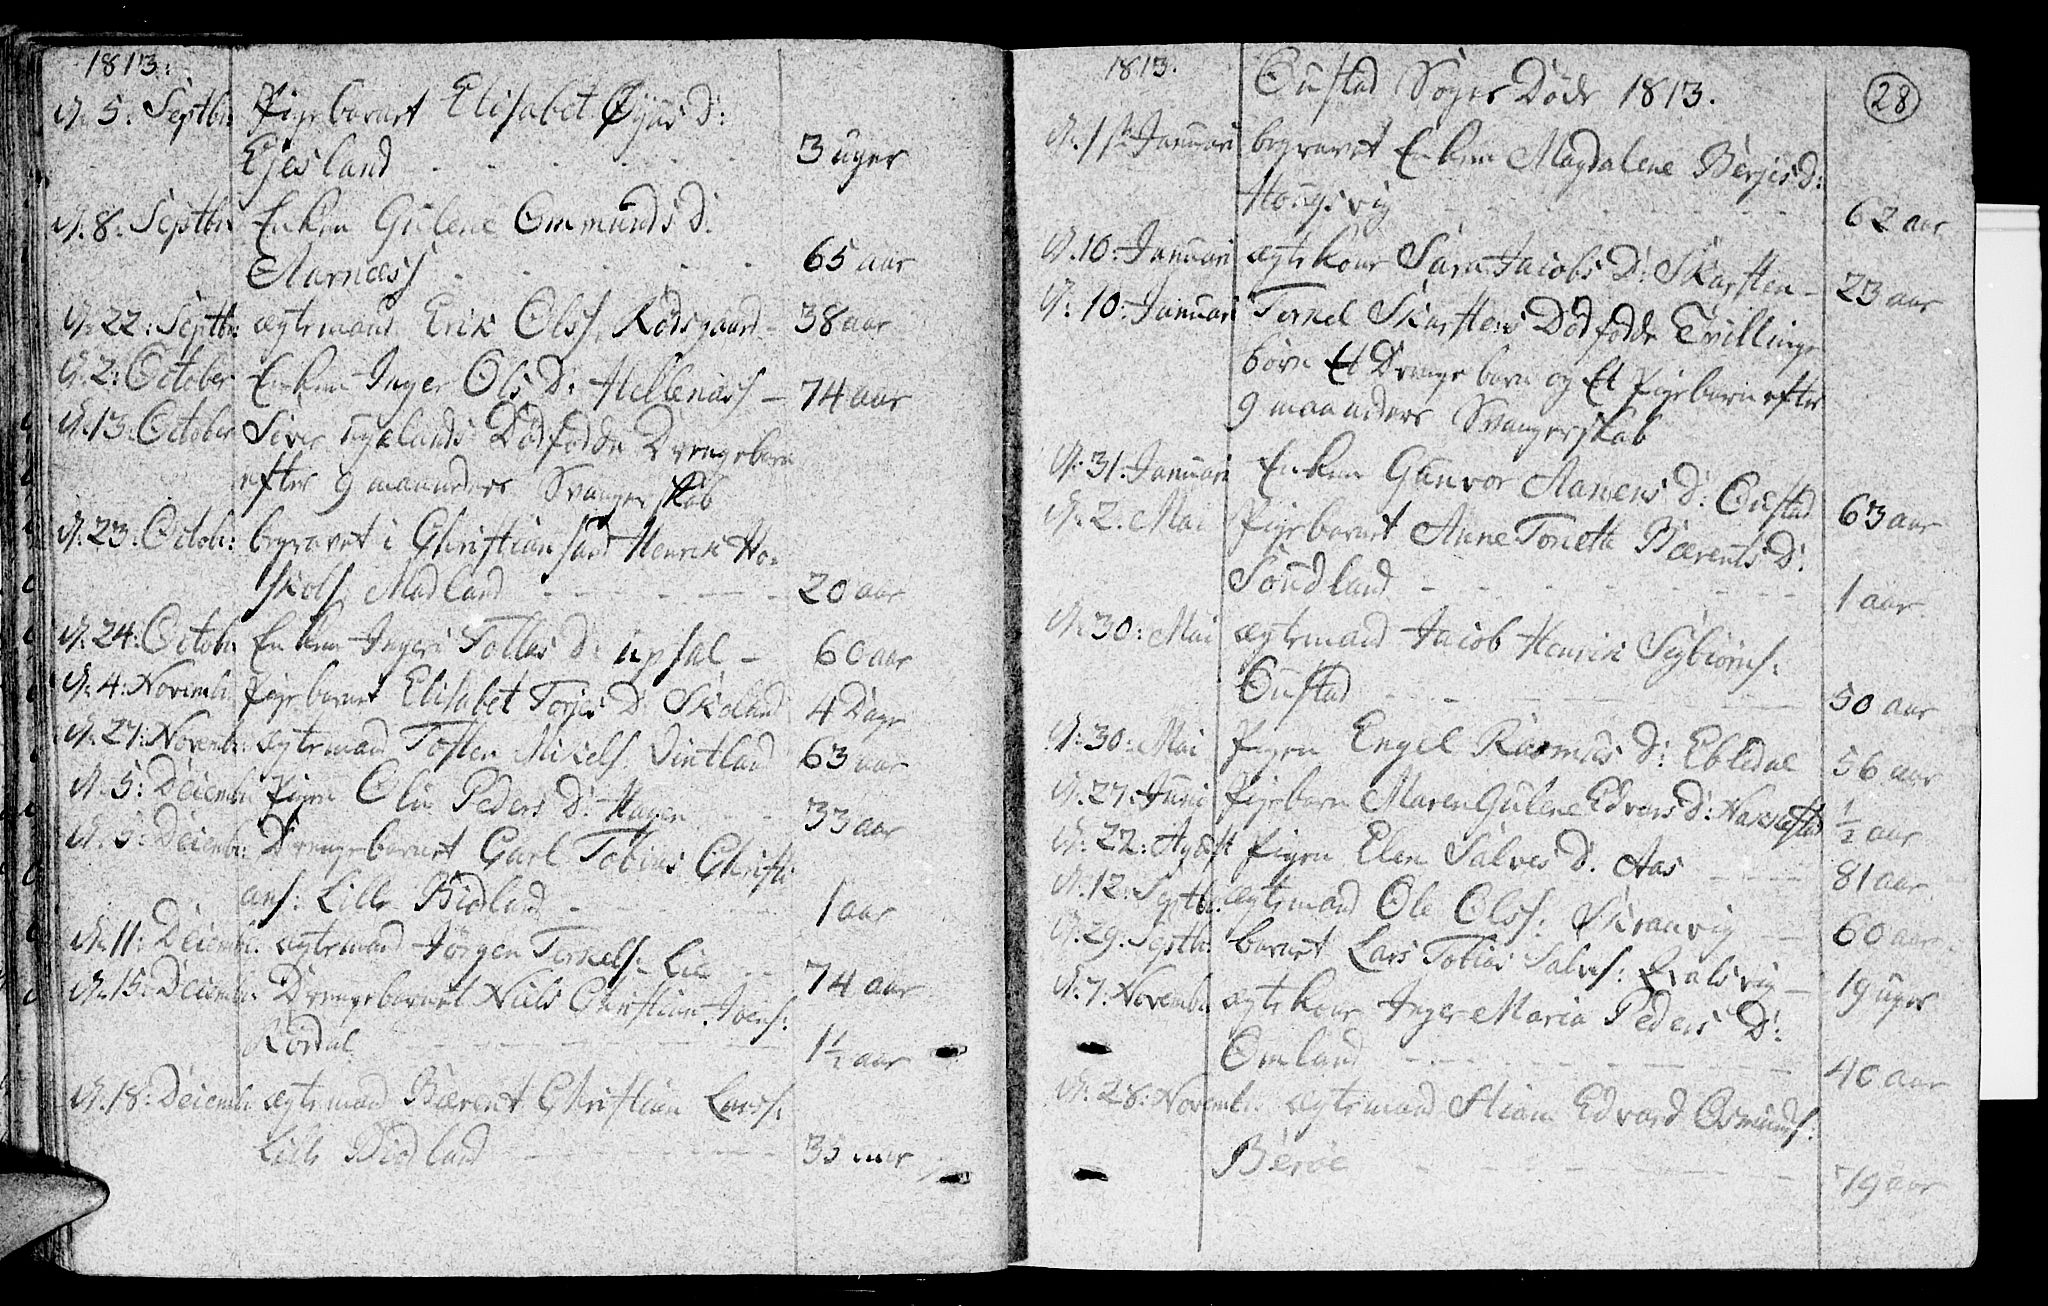 1813:
d. 5. Septbr: Pigebarnet Elisabet Øyas D:
Egesland 3 uger
d. 8. Septbr Enken Gulene Ommunds D:
Aarnæss 65 aar
d. 22: Septbr ægtemand Erik Olss. Rødsgaard 38 aar
d. 2: October Enken Inger Ols D: Hellenæss 74 aar
d. 13: October Siver Tveelands Dødfødde Drengebarn
efter 9 maaneders Svangerskab
d. 23: Octobr: begravet i Christiansand Henrik Ho-
skols. Madland 20 aar
d. 24: Octobr Enken Inger Tolles D: Upsal 60 aar
d. 4: Novembr Pigebarnet Elisabet Torjes D: Skoland 4 Dage
d. 27: Novembr: ægtemand Tosten Mikels. 63 aar
d. 5: Decembr Pigen Olin Peders D: Hagen 33 aar
d. 5: Decembr: Drengebarnet Carl Tobias Christi
ans: Lille Biodland 1 aar
d. 11: Decembr. ægtemand Jørgen Terkels. Lie 74 aar
d. 15: Decembr. Drengebarnet Niels Christian Joens:
Røisdal 1½ aar
d. 18: Decembr ægtemand Bærent Christian Larss:
Lille Biodland 33 aar
1813.
Oustad Sogns Døde 1813.
28
d. 1ste Januari begravet Enken Magdalene Berjes D:
Hougsvig 62 aar
d. 10: Januari ægtekone Sara Jacobs D: Skarsten 23 aar
d. 10: Januari Terkel Skarstens Dødfødde Tvillinge
børn Et Drengebarn og Et Pigebarn efter
9 maaneders Svangerskab
d. 31. Januari Enken Gunvor Aanens D: Oustad 63 aar
d. 2. Mai Pigebarnet Anne Torieta Bærents D:
Soudland 1 aar
d. 30: Mai ægtemand Jacob Henrik Sybiørns:
Oustad 50 aar
d. 30: Mai Pigen Engel Rasmus D: Ebledal 56 aar
d. 27: Juni Pigebarn Maren Gulene Edvars D: Haavestad ½ aar
d. 22: Agust Pigen Elen Salves D. Aas 81 aar
d. 12: Septbr. ægtemand Ole Olss: Skranvig 60 aar
d. 29: Septbr. barnet Lars Tobias Salves: Qvalsvig 19 uger
d. 7: Novembr ægtekone Inger Maria Peders D:
Omland 40 aar
d. 28: Novembr. ægtemand Stian Edvard Osmunds:
Berøe 79 aar